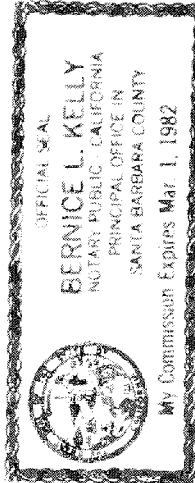 OFFICIAL SEAL
BERNICE L. KELLY
NOTARY PUBLIC - CALIFORNIA
PRINCIPAL OFFICE IN
SANTA BARBARA COUNTY
My Commission Expires Mar. 1, 1982